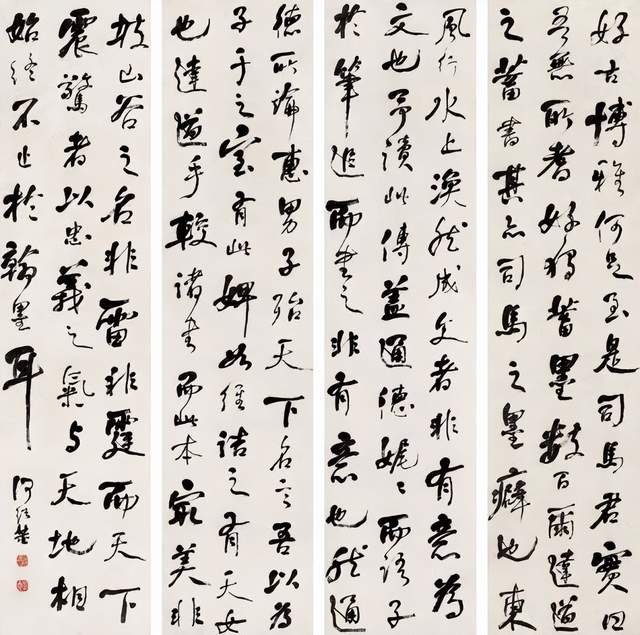 好古博雅何足至是司馬君實曰
吾無所耆好獨蓄墨數百爾達道
之蓄書其亦司馬之墨癖也東
風行水上渙然成文者非有意為
文也予讀此傳蓋通德娓〻而語子
於筆追而書之非有意也然通
德所論惠男子殆天下名言吾以為
子于之室有此婢如維詰之有天女
也達道手較諸書而此本最美非
坡山谷之名非雷非霆而天下
震驚者以忠義之氣与天地相
始終不止於翰墨耳 何紹基